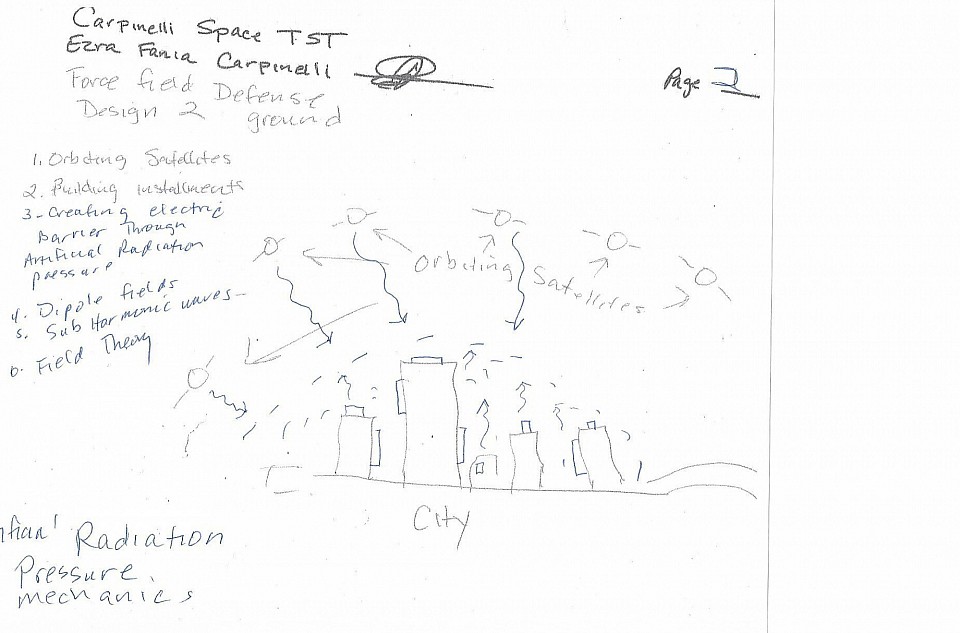 Carpinelli Space TST
Ezra Fania Carpinelli
Force field Defense
Design 2 ground
Page 2
1. Orbiting Satellites
2. Building installments
3 - Creating electric
Barrier Through
Artificial Radiation
pressure
4. Dipole fields
5. Sub Harmonic waves -
6. Field Theory
Orbiting Satellites
City
Radiation
Pressure
mechanics